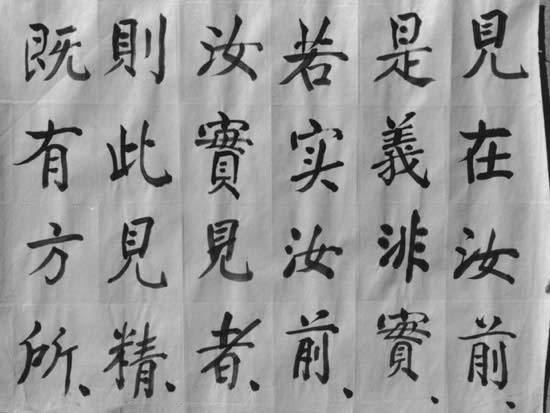 見在汝前、
是義非實、
若实汝前、
汝實見者、
則此見精、
既有方所、